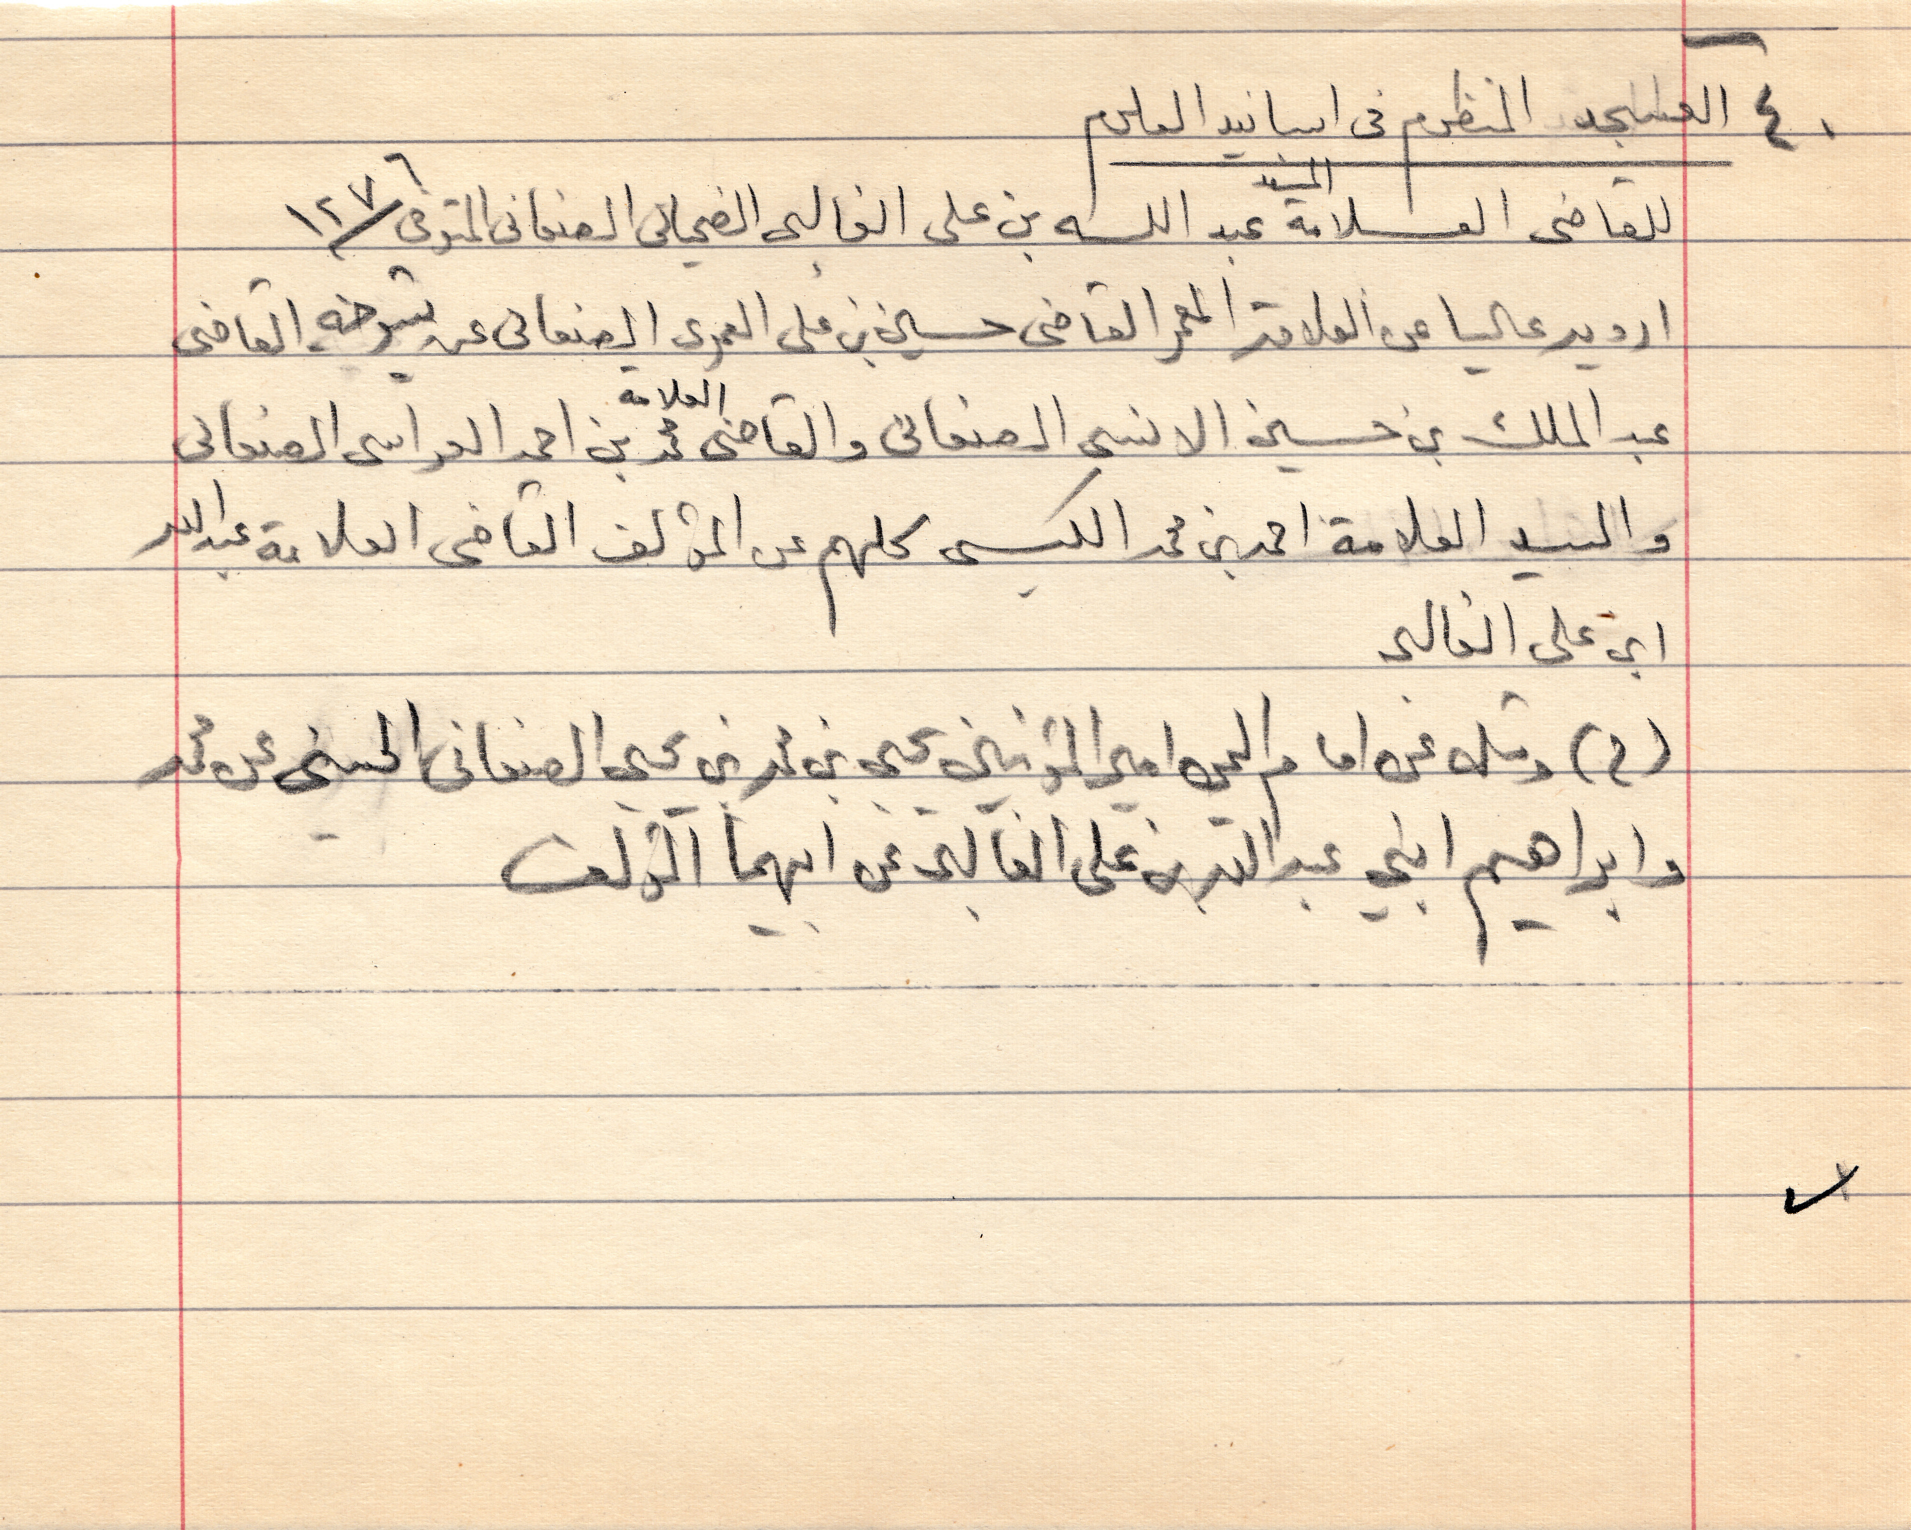 ٤٠ العسجد المنظوم فى اسانيد العلوم
للقاضى العلامة المسند عبد الله بن على الغالبى الضحيانى الصنعانى المتوفى ١٢٧٦
ارويه عاليا عن العلامة المعمر القاضى حسين بن على العمرى الصنعانى عن شيوخه القاضى
عبد الملك بن حسين الانسى الصنعانى والقاضى العلامة محمد بن احمد العراسى الصنعانى
والسيد العلامة احمد بن محمد الكبسى كلهم عن المؤلف القاضى العلامة عبد الله
ابن على الغالبى
(ح) ومثله عن امام اليمن امير المؤمنين يحيى بن محمد بن يحيى الصنعانى الحسنى عن محمد
وابراهيم ابنى عبد الله بن على الغالبى عن ابيهما المؤلف